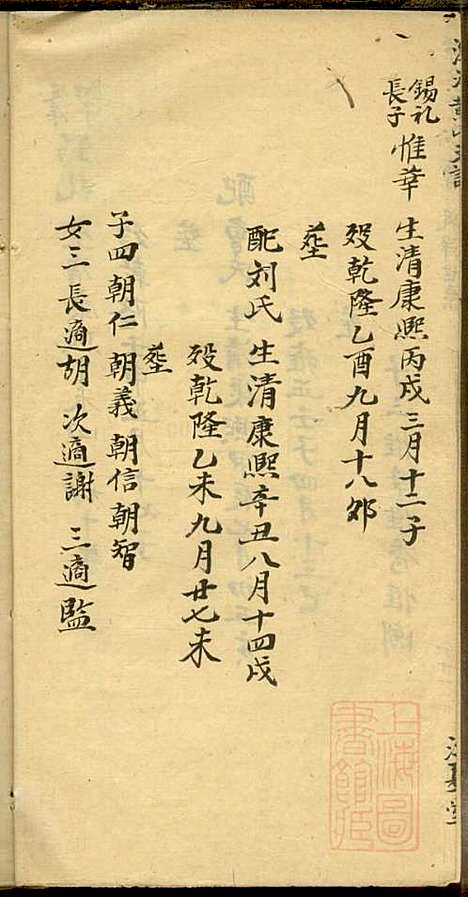 錫礼
長子
惟華 生清康熙丙戌三月十二子
歿乾隆乙酉九月十八卯
塟
配刘氏 生清康熙辛丑八月十四戌
歿乾隆乙未九月廿七未
塟
子四朝仁 朝義 朝信朝智
女三長適胡 次適謝 三適藍
上海圖
書館藏